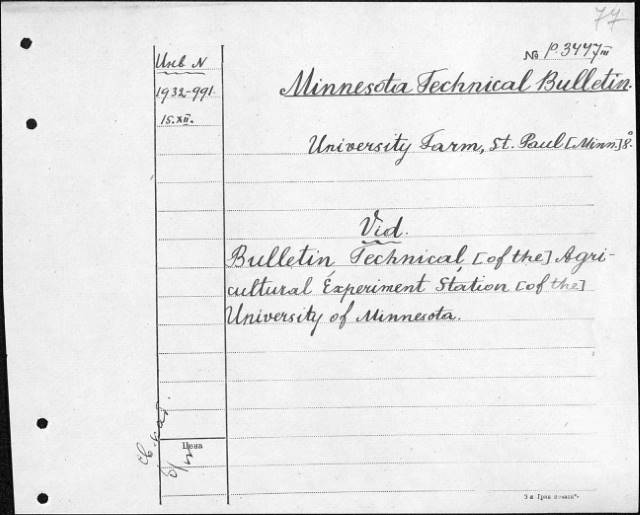 77
№ p.3447 III
Инв N
Minnesota Technical Bulletin.
1932-991
15.XII.
University Farm, St. Paul [Minn.] 8°.
Vid.
Bulletin Technical, [of the] Agri-
cultural Experiment Station [of the]
University of Minnesota.
Цена
б/ц